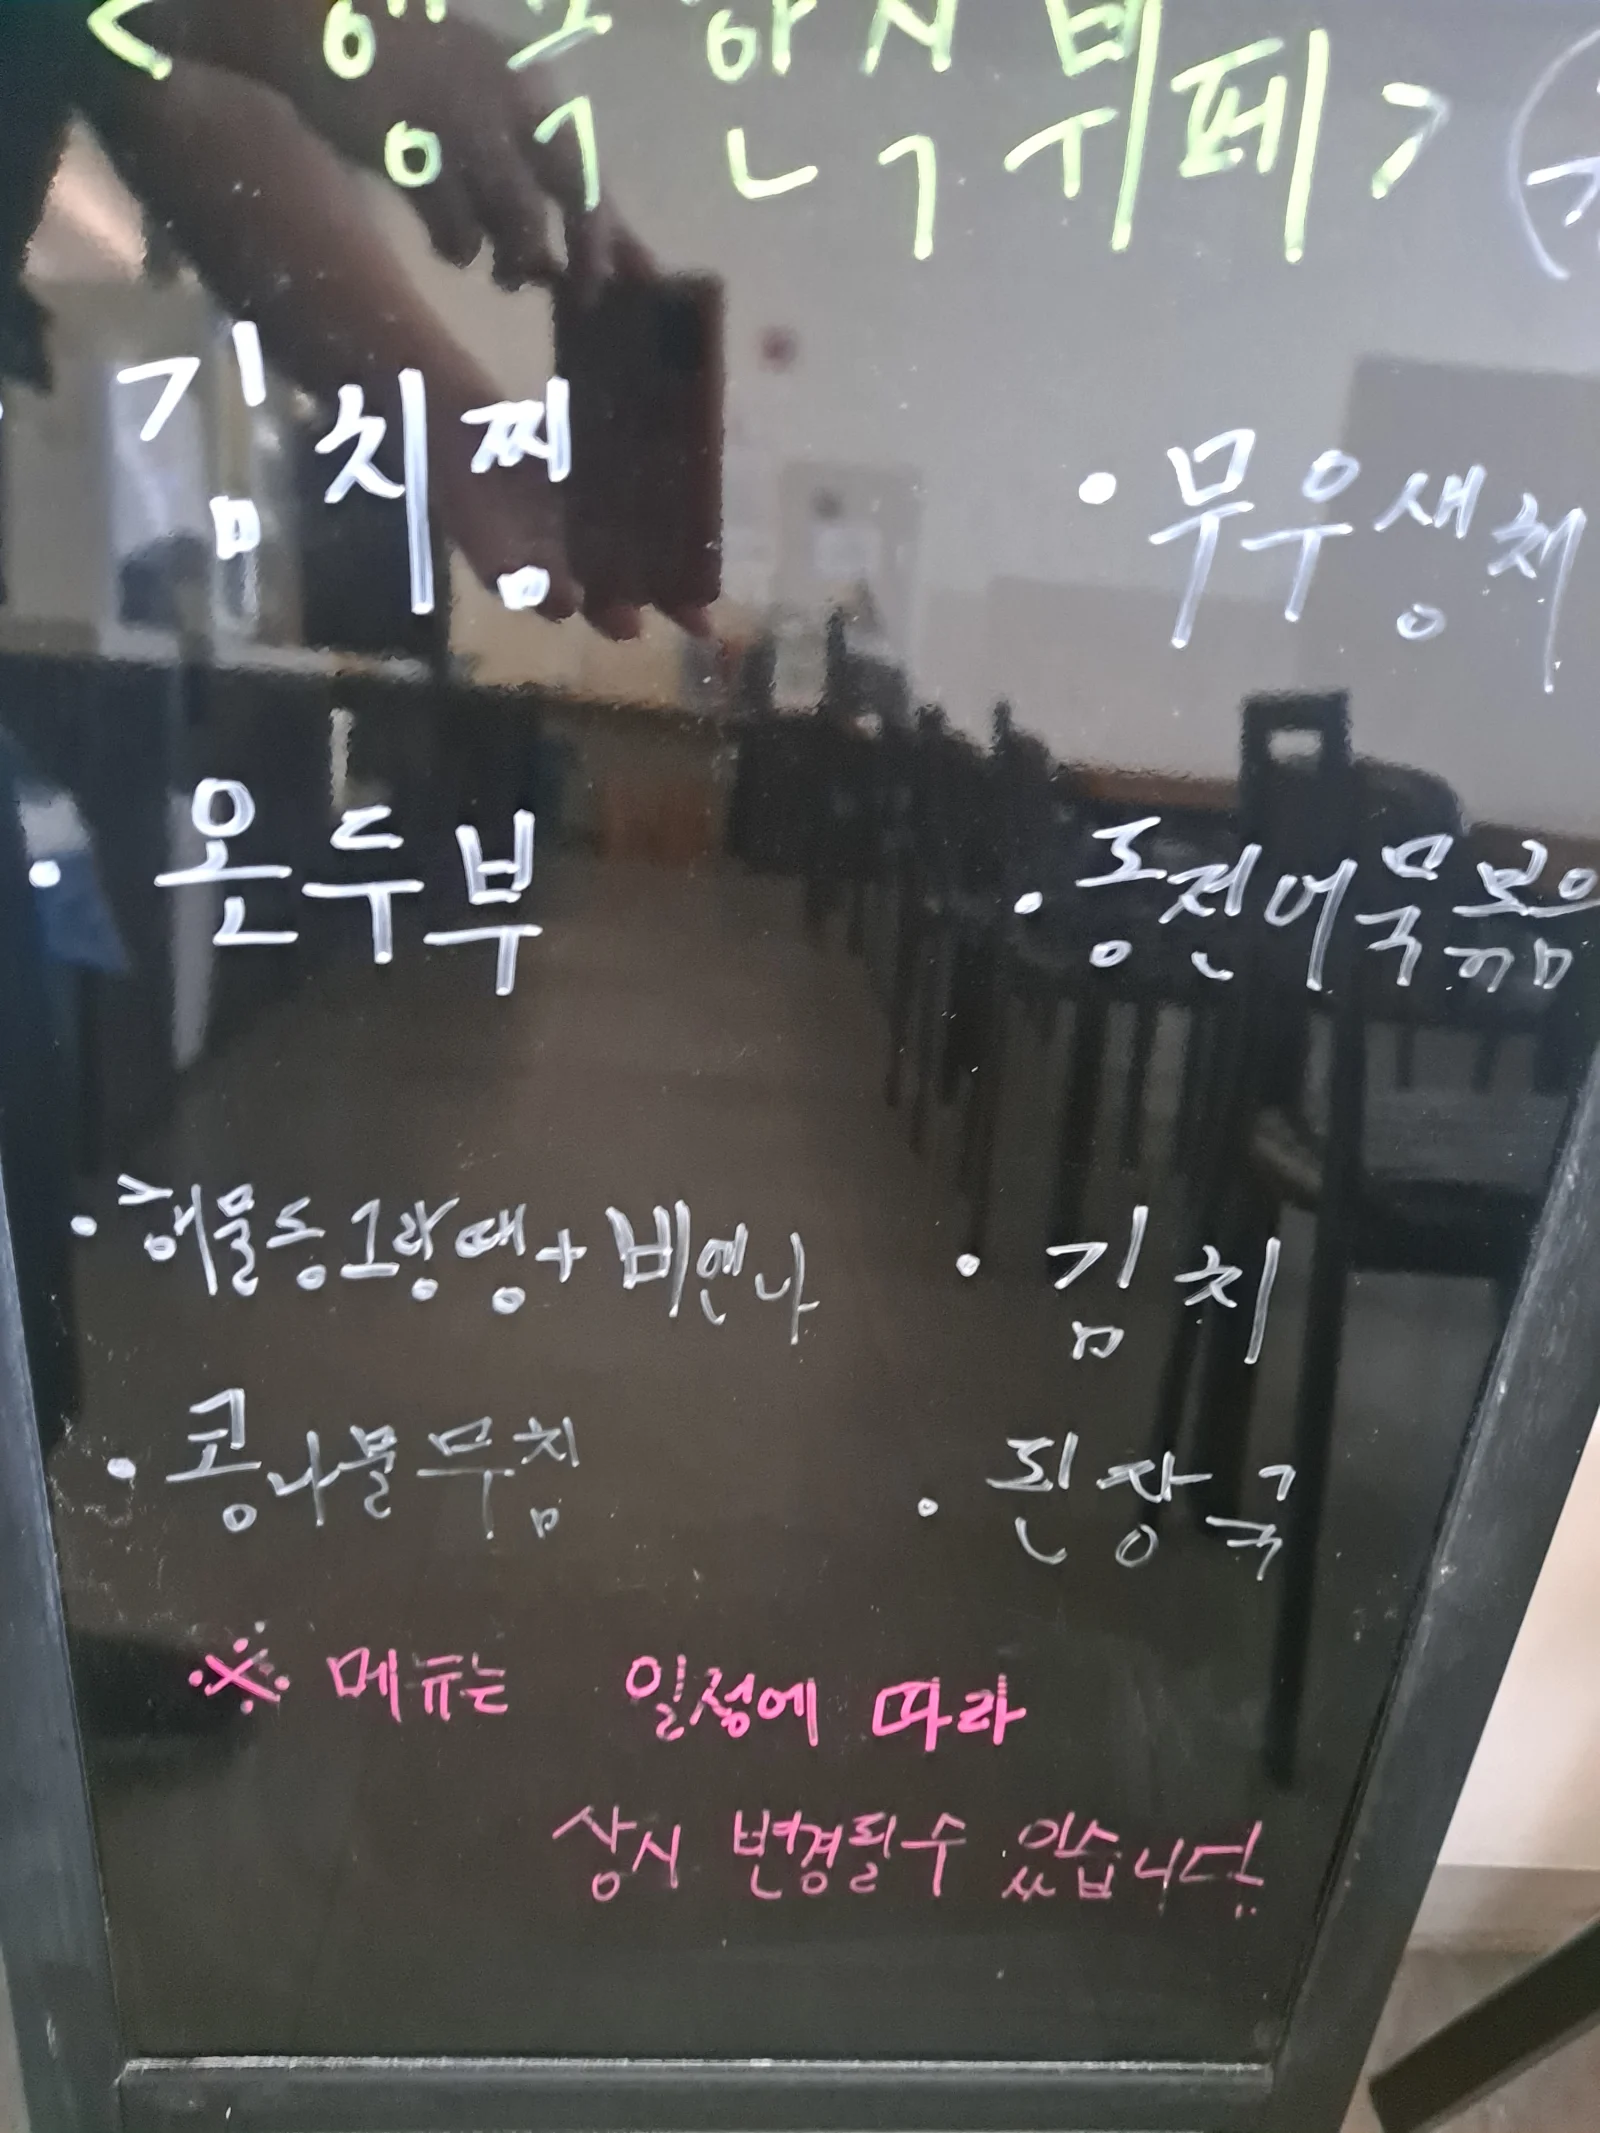 < 행복한식뷔페 >
· 김치찜
· 무우생채
· 온두부
· 동전어묵볶음
· 해물동그랑땡+비엔나
· 김치
· 콩나물무침
· 된장국
※ 메뉴는 일정에 따라
상시 변경될수 있습니다.